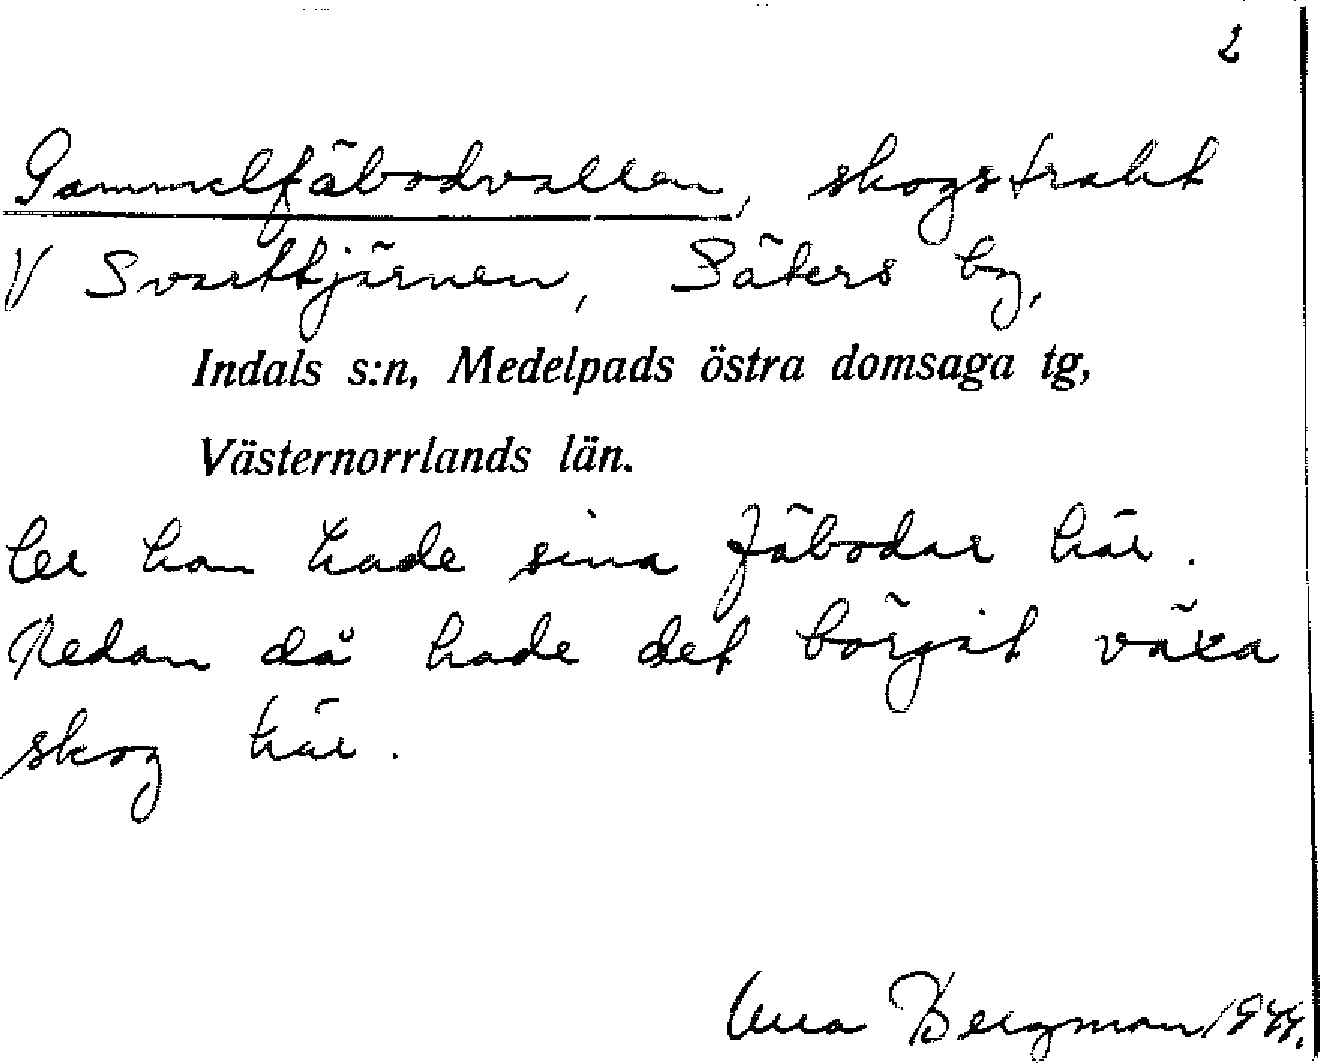 2
Gammelfäbodvallen, skogstrakt
V Svarttjärnen, Säters by,
Indals s:n, Medelpads östra domsaga tg,
Västernorrlands län.
ler han hade sina fäbodar här.
Redan då hade det börjat växa
skog här.
Bergman 1944.